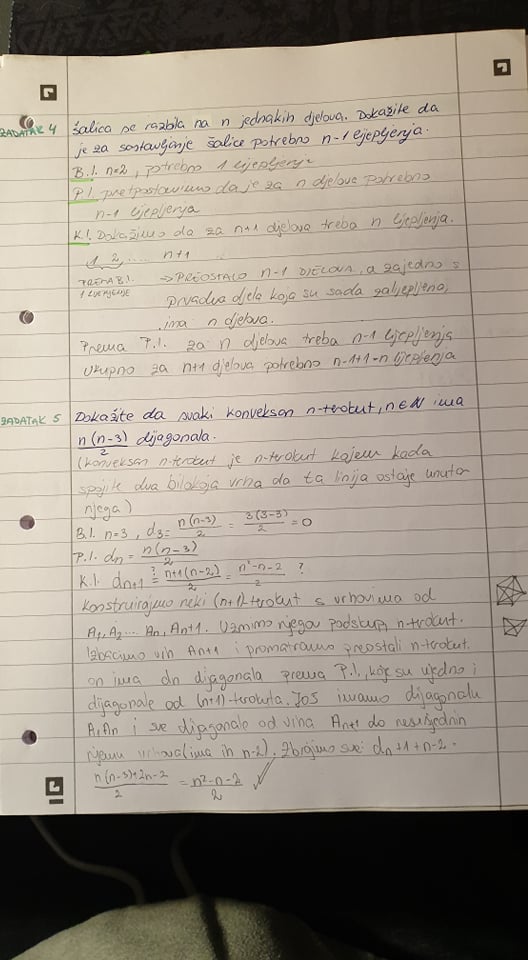 ZADATAK 4 Šalica se razbila na n jednakih djelova. Dokažite da
je za sastavljanje šalice potrebno n-1 lijepljenja.
B.I. n=2, potrebno 1 lijepljenje
P.I. pretpostavimo da je za n djelova potrebno
n-1 ljepljenja
K.I. Dokažimo da za n+1 djelova treba n ljepljenja.
1, 2, .... n+1
PREMA B.I. → PREOSTALO n-1 DJELOVA, a zajedno s
1 LJEPLJENJE prva dva djela koja su sada zaljepljena,
ima n djelova.
Prema P.I. za n djelova treba n-1 ljepljenja
ukupno za n+1 djelova potrebno n-1+1=n ljepljenja
ZADATAK 5 Dokažite da svaki konveksan n-terokut, n∈N ima
n(n-3)/2 dijagonala.
(konveksan n-terokut je n-terokut kojem kada
spojite dva bilokoja vrha da ta linija ostaje unutar
njega)
B.I. n=3, d3= n(n-3)/2 = 3(3-3)/2 = 0
P.I. dn= n(n-3)/2
K.I. dn+1 ?= n+1(n-2)/2 = n²-n-2/2 ?
Konstruirajmo neki (n+1)-terokut s vrhovima od
A1, A2 ... An, An+1. Uzmimo njegov podskup, n-terokut.
Izbacimo vrh An+1 i promatramo preostali n-terokut.
on ima dn dijagonala prema P.I., koje su ujedno i
dijagonale od (n+1)-terokuta. Još imamo dijagonalu
A1An i sve dijagonale od vrha An+1 do nesusjednih
njemu vrhova (ima ih n-2). Zbrojimo sve: dn+1+n-2.
n(n-3)+2n-2/2 = n²-n-2/2 ✓